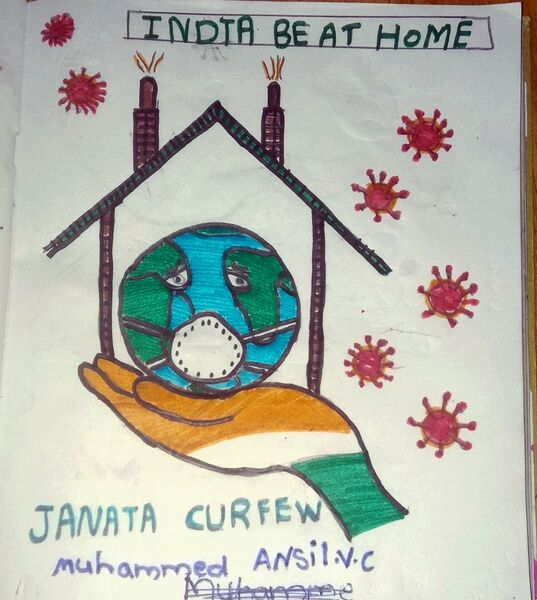 INDIA BE AT HOME
JANATA CURFEW
muhammed ANSil.V.C
Muhamme